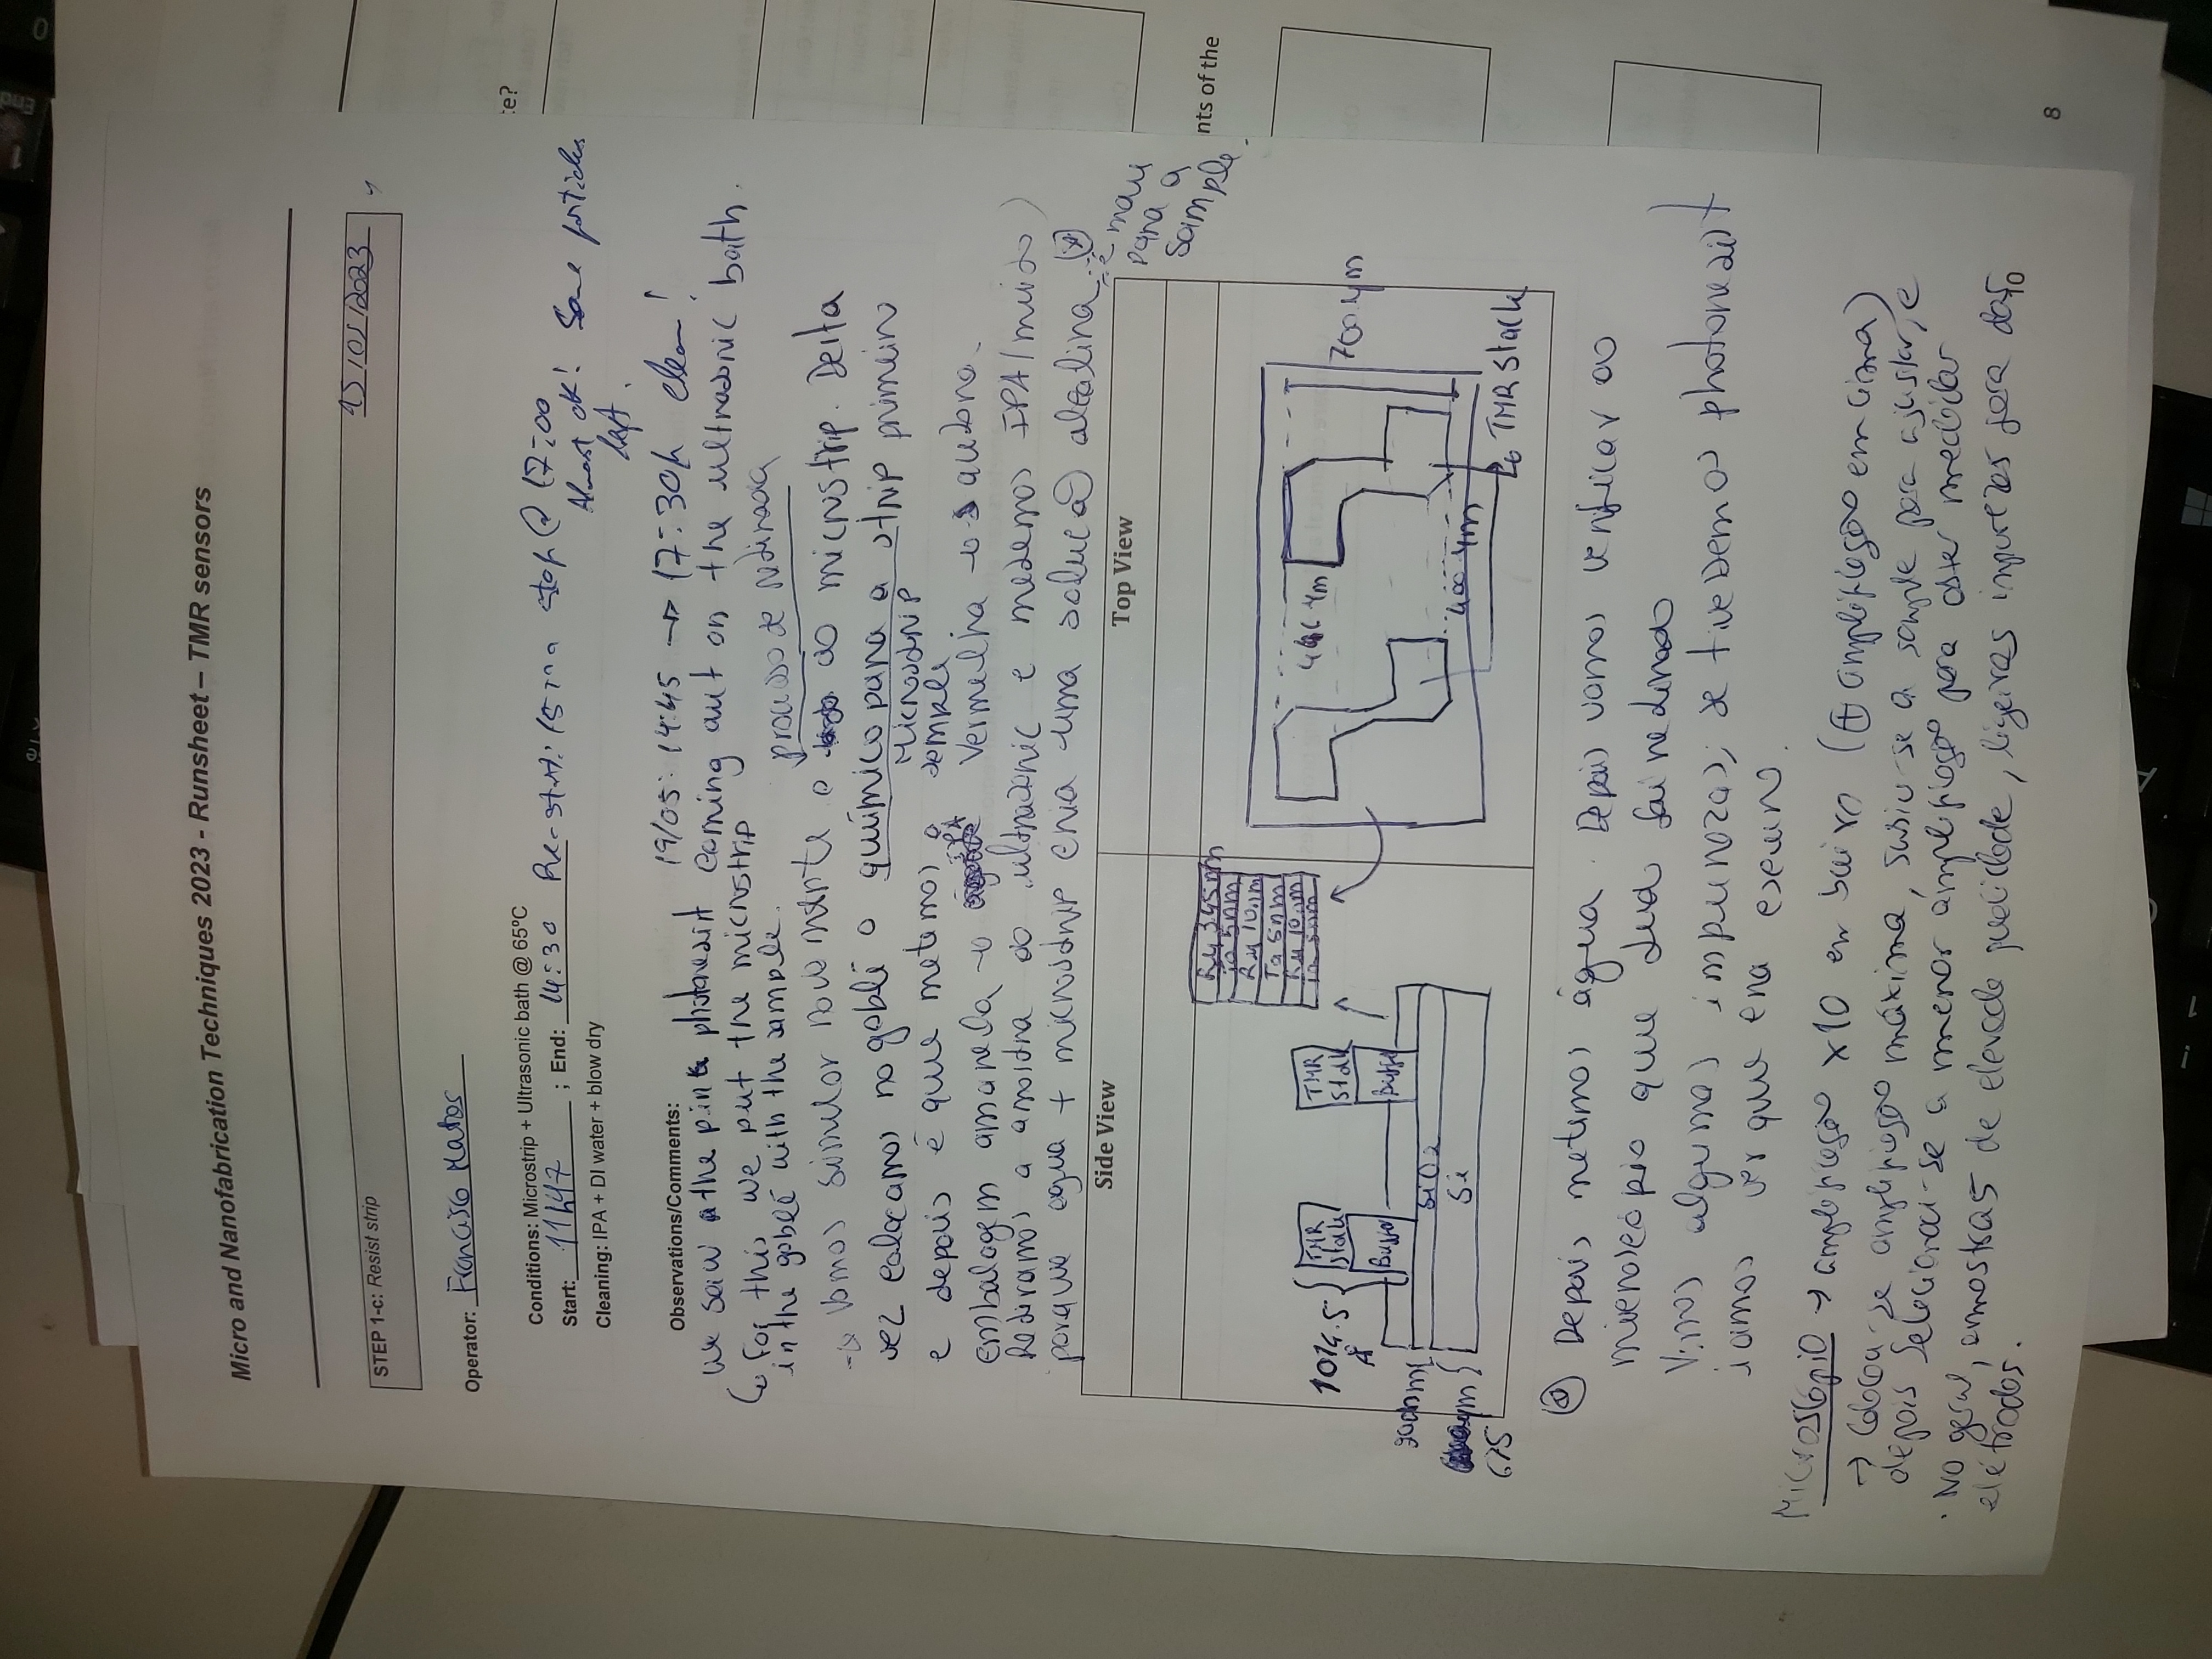 Micro and Nanofabrication Techniques 2023 - Runsheet – TMR sensors
STEP 1-c: Resist strip
15/05/2023
Operator: Francisco Matos
Conditions: Microstrip + Ultrasonic bath @ 65ºC
Start: 11h47 ; End: 14:30 Re-start: 15 stop @ 17:00
Almost ok! Some particles
left.
Cleaning: IPA + DI water + blow dry
Observations/Comments:
19/05: 14:45 → 17:30h clean!
we saw the pink photoresist coming out on the ultrasonic bath.
↳ For this, we put the microstrip
in the goblé with the sample.
processo de retirada
→ Vamos simular novamente o do microstrip. Desta
vez colocamos no goblé o químico para a strip primeiro
Microstrip
e depois é que metemos a sample.
embalagem amarela → IPA Vermelha →
Retiramos a amostra do ultrasonic e metemos IPA (muito)
porque água + microstrip cria uma solução alcalina.
é mau
para a
sample.
Side View
Top View
Ru 3.45nm
Ta 5nm
Ru 10nm
Ta 5nm
Ru 10nm
Ta 5nm
1014.5
Å
TMR
stack
TMR
stack
Buffer
Buffer
SiO2
Si
µm
675
µm
700 µm
400 µm
↳ TMR stack
Depois metemos água. Depois vamos verificar ao
microscópio que tudo foi retirado
Vimos algumas impurezas, se tivessemos photoresist
iamos ver que era escuro.
Microscópio → amplificação x10 em baixo (+ amplificação em cima)
→ Colocou-se amplificação máxima, subiu-se a sample para ajustar, e
depois selecionou-se a menor amplificação para obter medidas
· No geral, amostras de elevada qualidade, ligeiras impurezas fora dos
elétrodos.
10
8
te?
nts of the